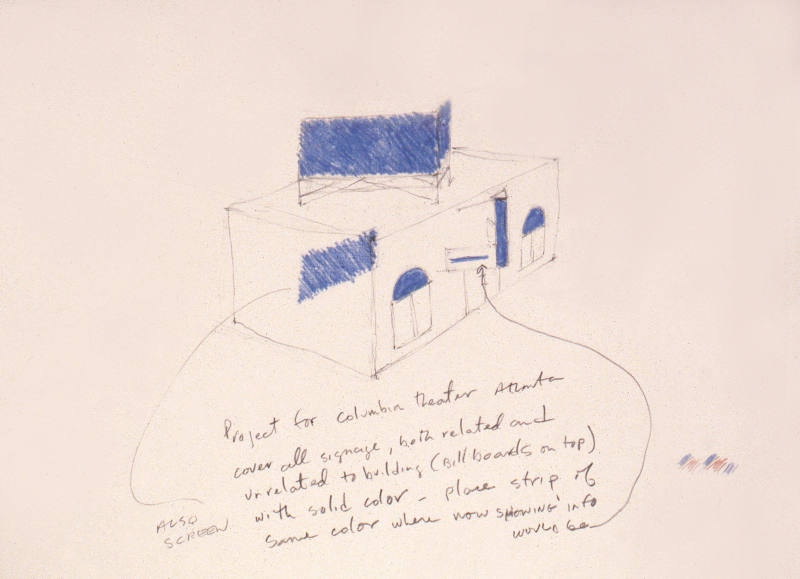 Project for columbia theater Atlanta
cover all signage, both related and
unrelated to building (Billboards on top)
with solid color - place strip of
same color where now showing info
would be
ALSO
SCREEN